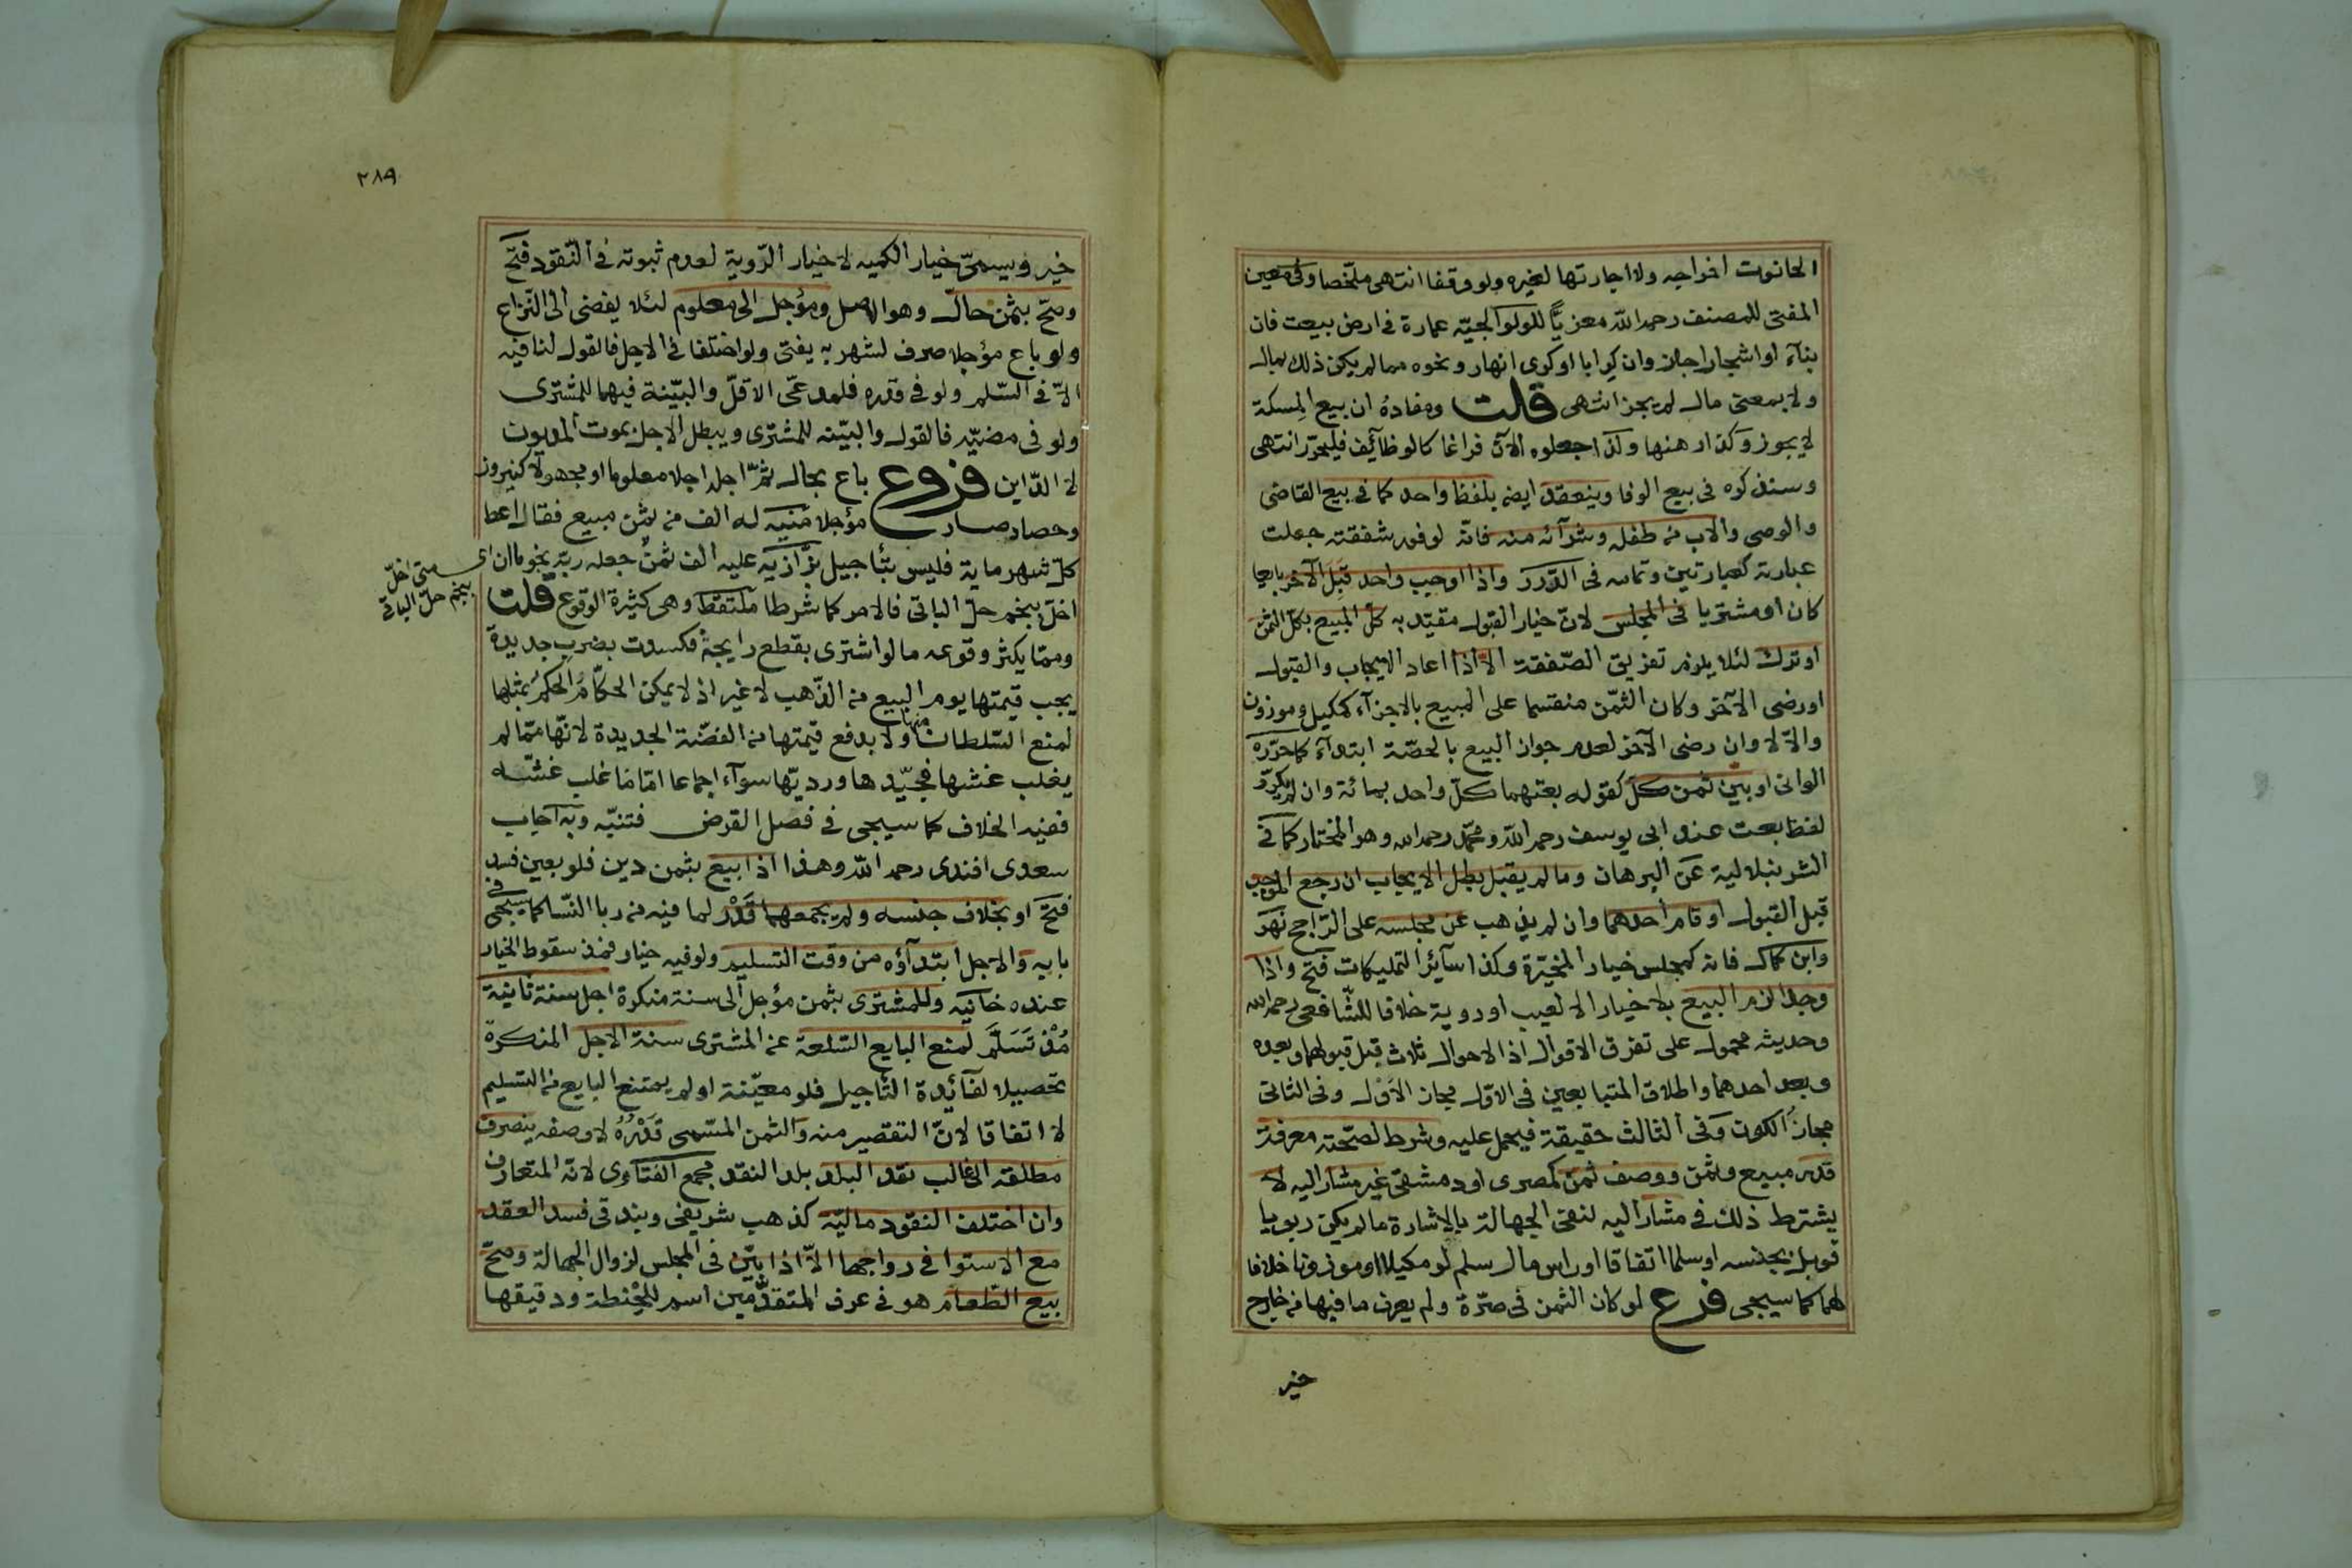 الحانوت اخراجه ولا اجارتها لغيره ولو وقفا انتهى ملخصا وفى معين
المفتى للمصنف رحمه اللّه معزيًّا للولوالجيّه عمارة فى ارض بيعت فان
بنآء او اشجارا جاز وان كرابا او كرى انهار ونحوه مما لم يكن ذلك بمال
ولا بمعنى مال لم يجز انتهى قلت ومفادهُ ان بيع المِسكة
لا يجوز وكذا رهنها ولذا جعلوه الآن فراغا كالوظآئِف فليحرّر انتهى
وسنذكره فى بيع الوفا وينعقد ايضا بلفظ واحد كما فى بيع القاضى
والوصى والاب من طفله وشرآئه منه فانّه لوفور شفقته جعلت
عبارته كعبارتين وتمامه فى الدّرر واذا اوجب واحد قَبِلَ الآخر بايعا
كان او مشتريا فى المجلس لانّ خيار القبول مقيّد به كلّ المبيع بكلّ الثمن
او ترك لئلا يلزم تفريق الصّفقة الاّ اذا اعاد الايجاب والقبول
او رضى الآخر وكان الثّمن منقسما على المبيع بالاجزآء كمكيل وموزون
والاّ لا وان رضى الآخر لعدم جواز البيع بالحصّة ابتدآء كما حرّره
الوانى او بيّن ثمن كلّ كقوله بعتهما كلّ واحد بمائة وان لم يكرّر
لفظ بعت عند ابى يوسف رحمه اللّه ومحمّد رحمه الله وهو المختار كما فى
الشرنبلالية عن البرهان وما لم يقبل بطل الايجاب ان رجع الموجب
قبل القبول او قام احدهما وان لم يذهب عن مجلسه على الرّاجح نهر
وابن كمال فانه كمجلس خيار المخيّرة وكذا سآئر التمليكات فتح واذا
وجدا لزم البيع بلا خيار الا لعيب او روية خلافا للشّافعى رحمه الله
وحديثه محمول على تفرق الاقوال اذ الاحوال ثلاث قبل قبولهما وبعده
وبعد احدهما واطلاق المتبايعين فى الاوّل مجاز الأَوْل وفى الثانى
مجاز الكون وفى الثالث حقيقة فيحمل عليه وشرط لصّحته معرفة
قدر مبيع وثمن ووصف ثمن كمصرى او دمشقىّ غير مشار اليه لا
يشترط ذلك فى مشار اليه لنفى الجهالة بالاشارة ما لم يكن ربويا
قوبل بجنسه او سلما اتفاقا او راس مال سلم لو مكيلا او موزونا خلافا
لهما كما سيجى فرع لو كان الثمن فى صرّة ولم يعرف ما فيها من خارج
خير
٢٨٩
خير ويسمىّ خيار الكميه لا خيار الرّوية لعدم ثبوته فى النّقود فتح
وصحّ بثمن حالّ وهو الاصل ومؤجل الى معلوم لئلا يفضى الى النّزاع
ولو باع مؤجلا صرف لشهر به يفتى ولو اختلفا فى الاجل فالقول لنافيه
الاّ فى السّلم ولو فى قدره فلمدعّى الاقلّ والبيّنة فيهما للمشترى
ولو فى مضيّه فالقول والبيّنه للمشترى ويبطل الاجل بموت المديون
لا الدّاين فروع باع بحال ثمّ اجله اجلا معلوما او مجهولا كنيروز
وحصاد صار مؤجلا منيه له الف من ثمن مبيع فقال اعط
كلّ شهر ماية فليس بتأجيل بزّازيه عليه الف ثمن جعله ربّه نجوما ان
اخلّ بنجم حلّ الباقى فالامر كما شرطا ملتقط وهى كثيرة الوقوع قلت
اى متى اخلّ
بنجم حلّ الباقى
وممّا يكثر وقوعه ما لو اشترى بقطع رايجة فكسدت بضرب جديدة
يجب قيمتها يوم البيع من الذّهب لا غير اذ لا يمكن الحكّام الحكم بمثلها
لمنع السّلطان منها ولا بدفع قيمتها من الفضّة الجديدة لانّها ممّا لم
يغلب غشها فجيّدها ورديّها سوآء اجماعا امّا ما غلب غشّه
ففيه الخلاف كما سيجى فى فصل القرض فتنبّه وبه اجاب
سعدى افندى رحمه اللّه وهذا اذا بيع بثمن دين فلو بعين فسد
فتح او بخلاف جنسه ولم يجمعهما قَدْر لما فيه من ربا النّسا كما سيجى فى
بابه والاجل ابتدآؤه من وقت التسليم ولو فيه خيار فمذ سقوط الخيار
عنده خانيه وللمشترى بثمن مؤجل الى سنة منكرة اجل سنة ثانية
مُذْ تَسَلَّم لمنع البايع السّلعة عن المشترى سنة الاجل المنكرة
تحصيلا لفآئِدة التّأجيل فلو معيّنة او لم يمتنع البايع من التسليم
لا اتفاقا لانّ التقصير منه والثمن المسّمى قَدْرُهُ لا وصفه ينصرف
مطلقه الى غالب نقد البلد بلد النقد مجمع الفتاوى لانّه المتعارف
وان اختلف النقود ماليّه كذهب شريفى وبندقى فسد العقد
مع الاستوا فى رواجها الاّ اذا بيّن فى المجلس لزوال الجهالة وصحّ
بيع الطّعام هو فى عرف المتقدّمين اسم للحِنطة ودقيقها